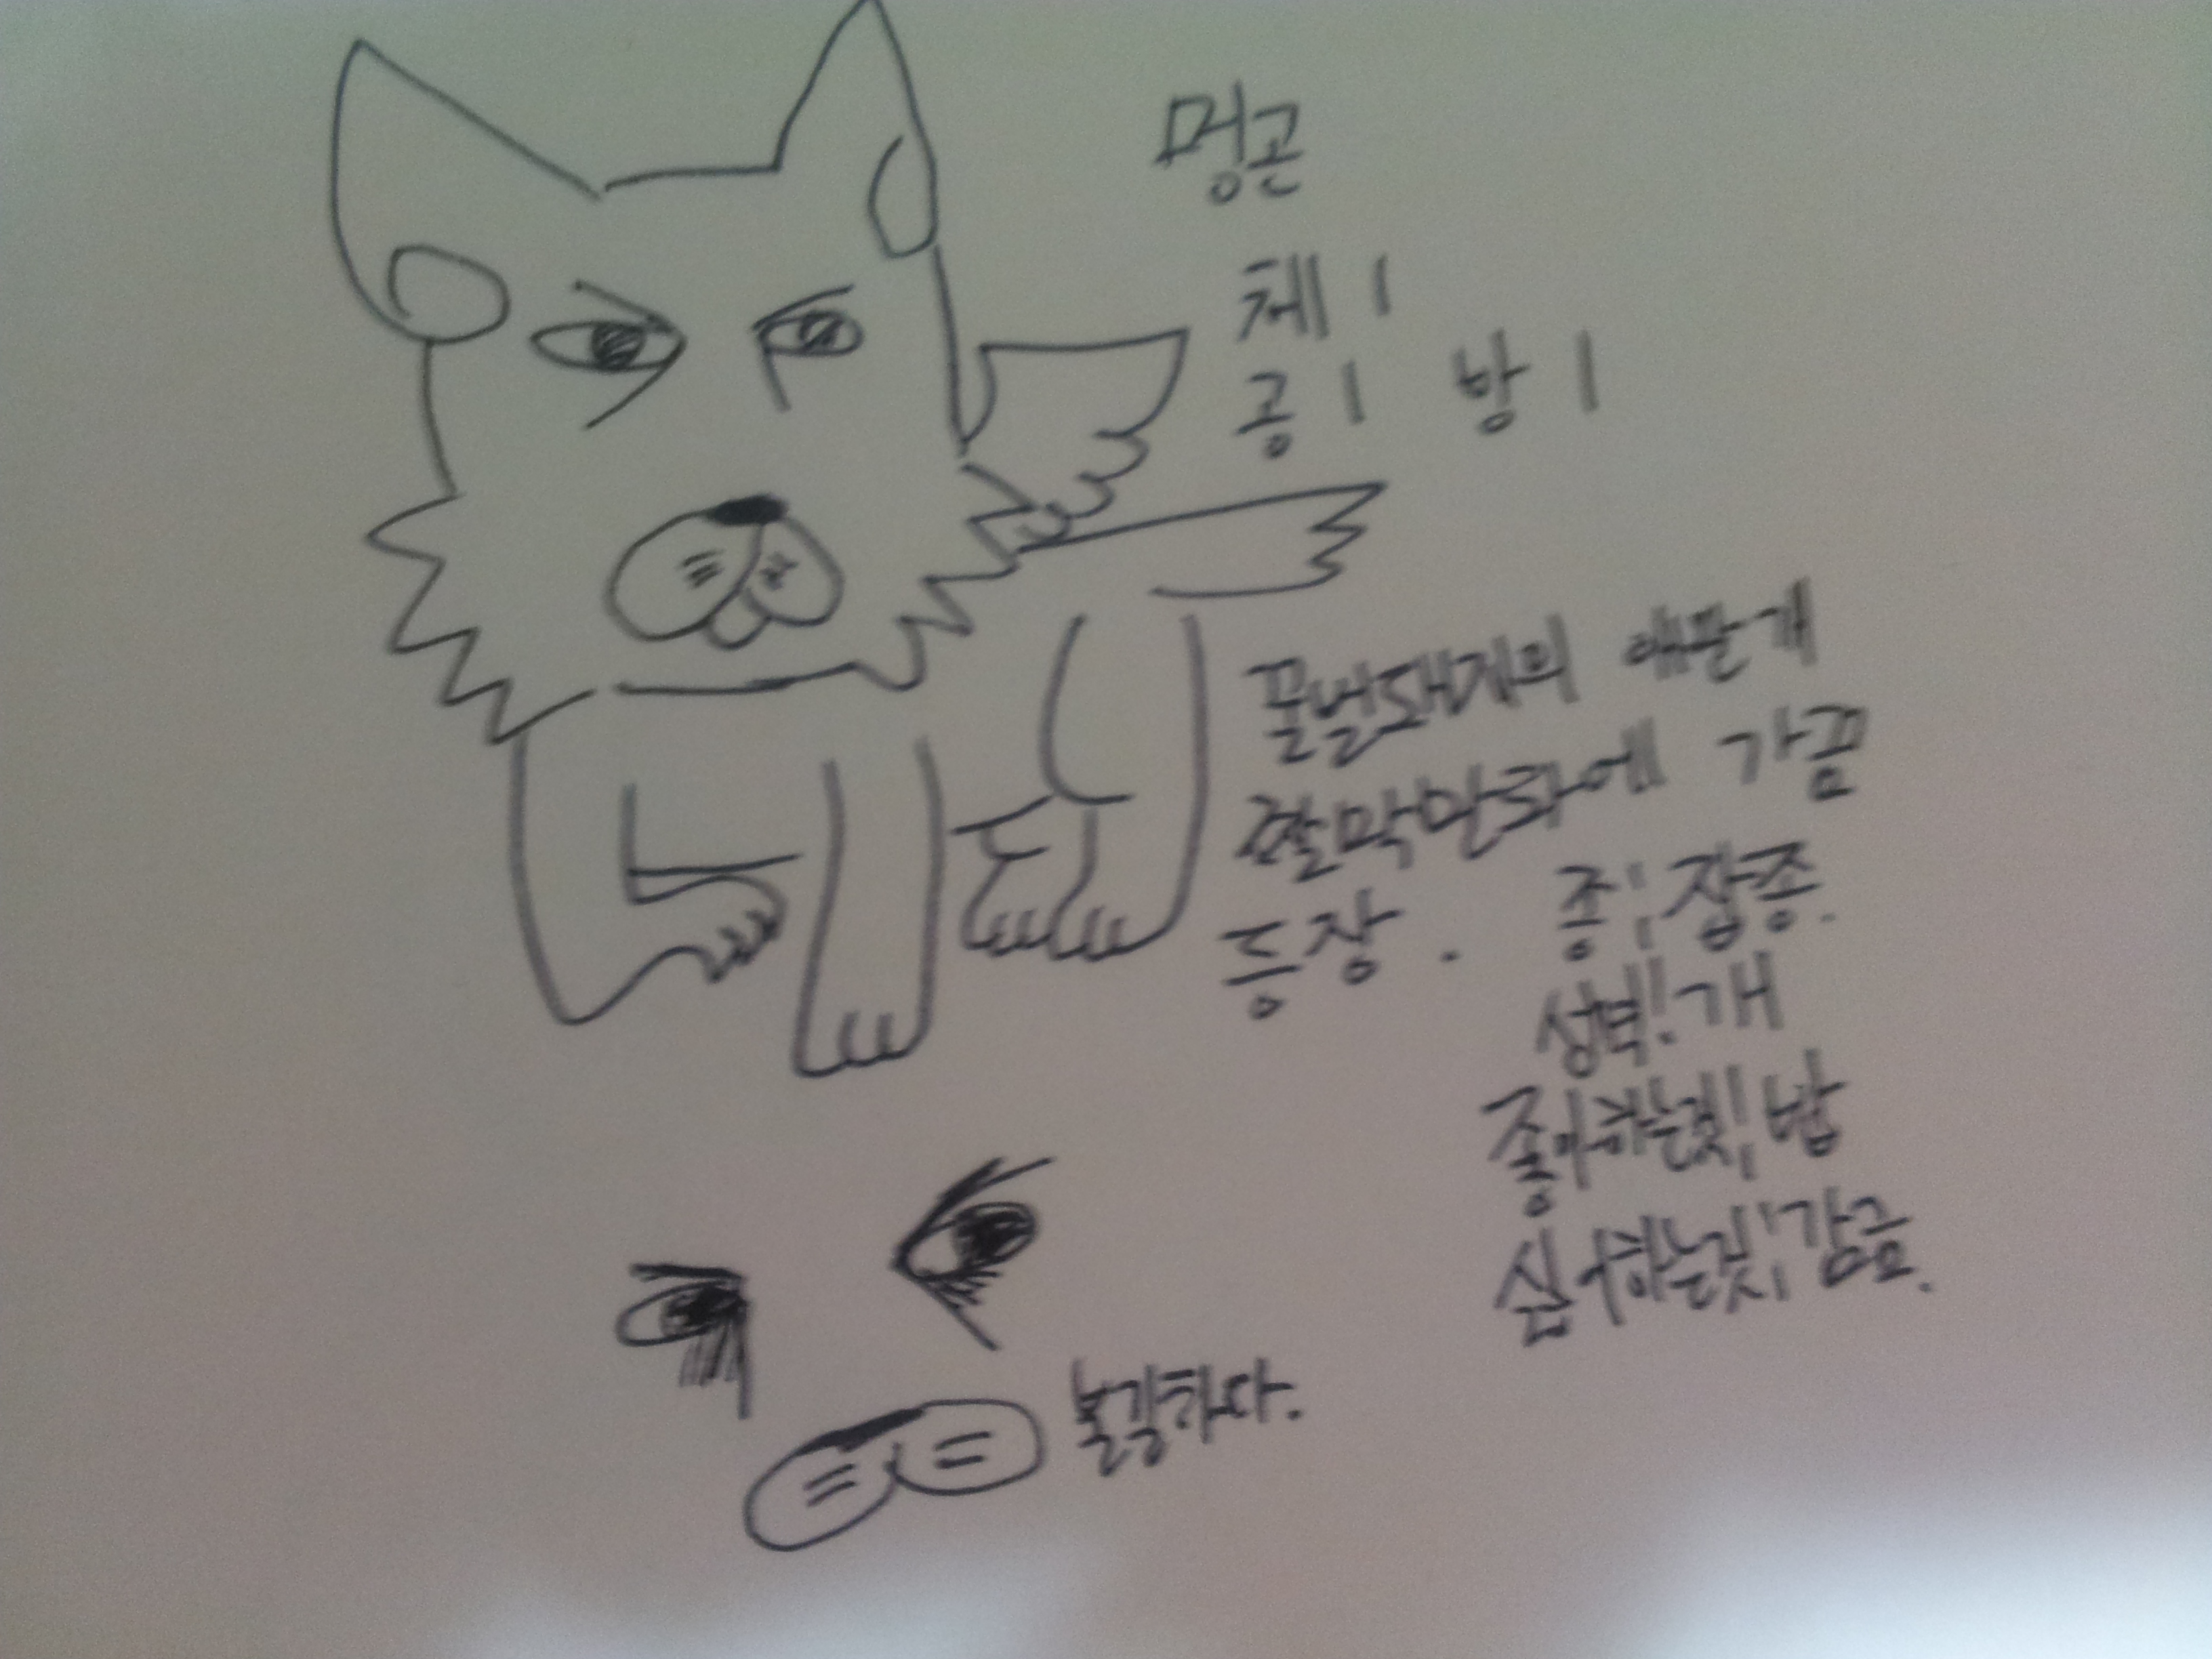 멍곤
체 1
공 1 방 1
꿀벌돼게의 애완개
짤막만화에 가끔
등장. 종: 잡종.
성벽: 개
좋아하는것: 밥
싫어하는것: 감금.
볼갈하다.